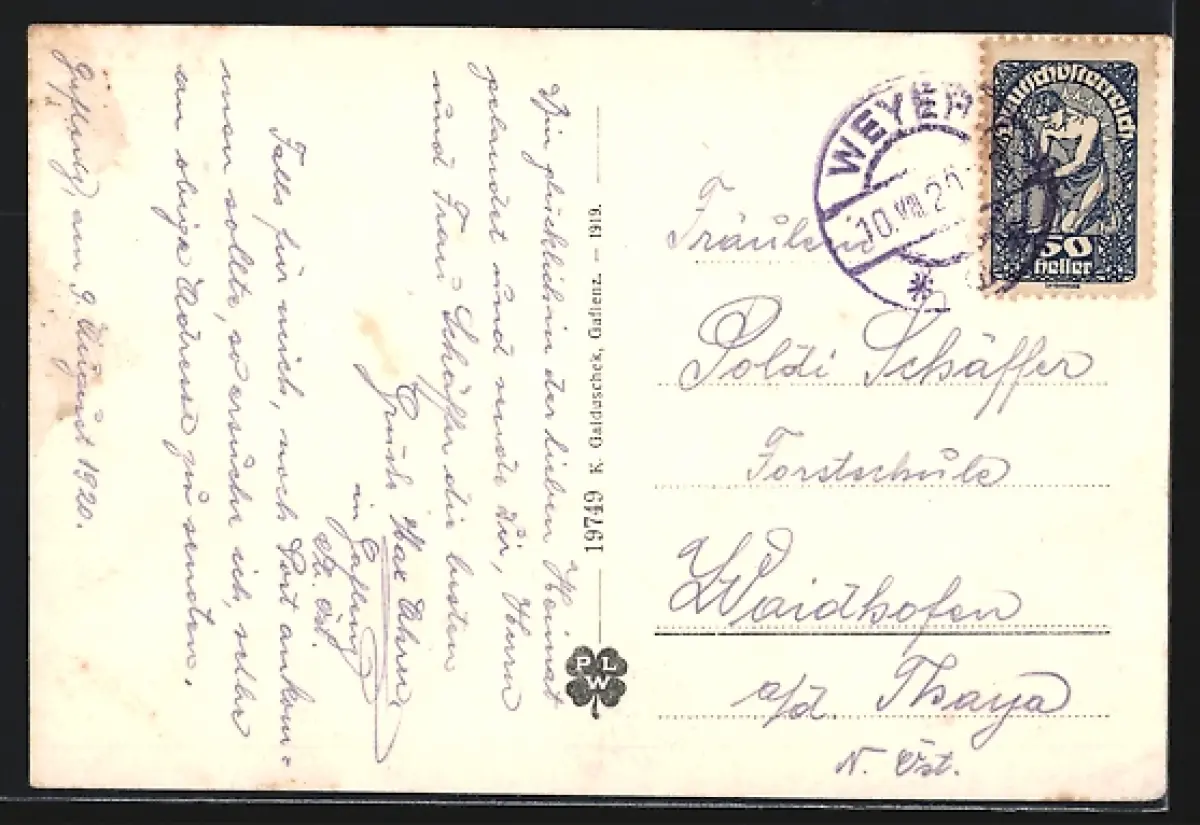 Gaflenz, am 9. August 1920.
Bin glücklich in der lieben Heimat
gelandet und sende dir, Herrn
und Frau Schäffer die besten
Grüße Max
in Gaflenz
Falls für mich, noch Post ankom-
men sollte, so ersuche ich, selbe
an obige Adresse zu senden.
19749 K. Galduschek, Gaflenz. — 1919.
P L
W
WEYER
10. VIII. 20
Deutschösterreich
50
Heller
Fräulein
Poldi Schäffer
Forstschule
Waidhofen
a/d. Thaya
N. Öst.